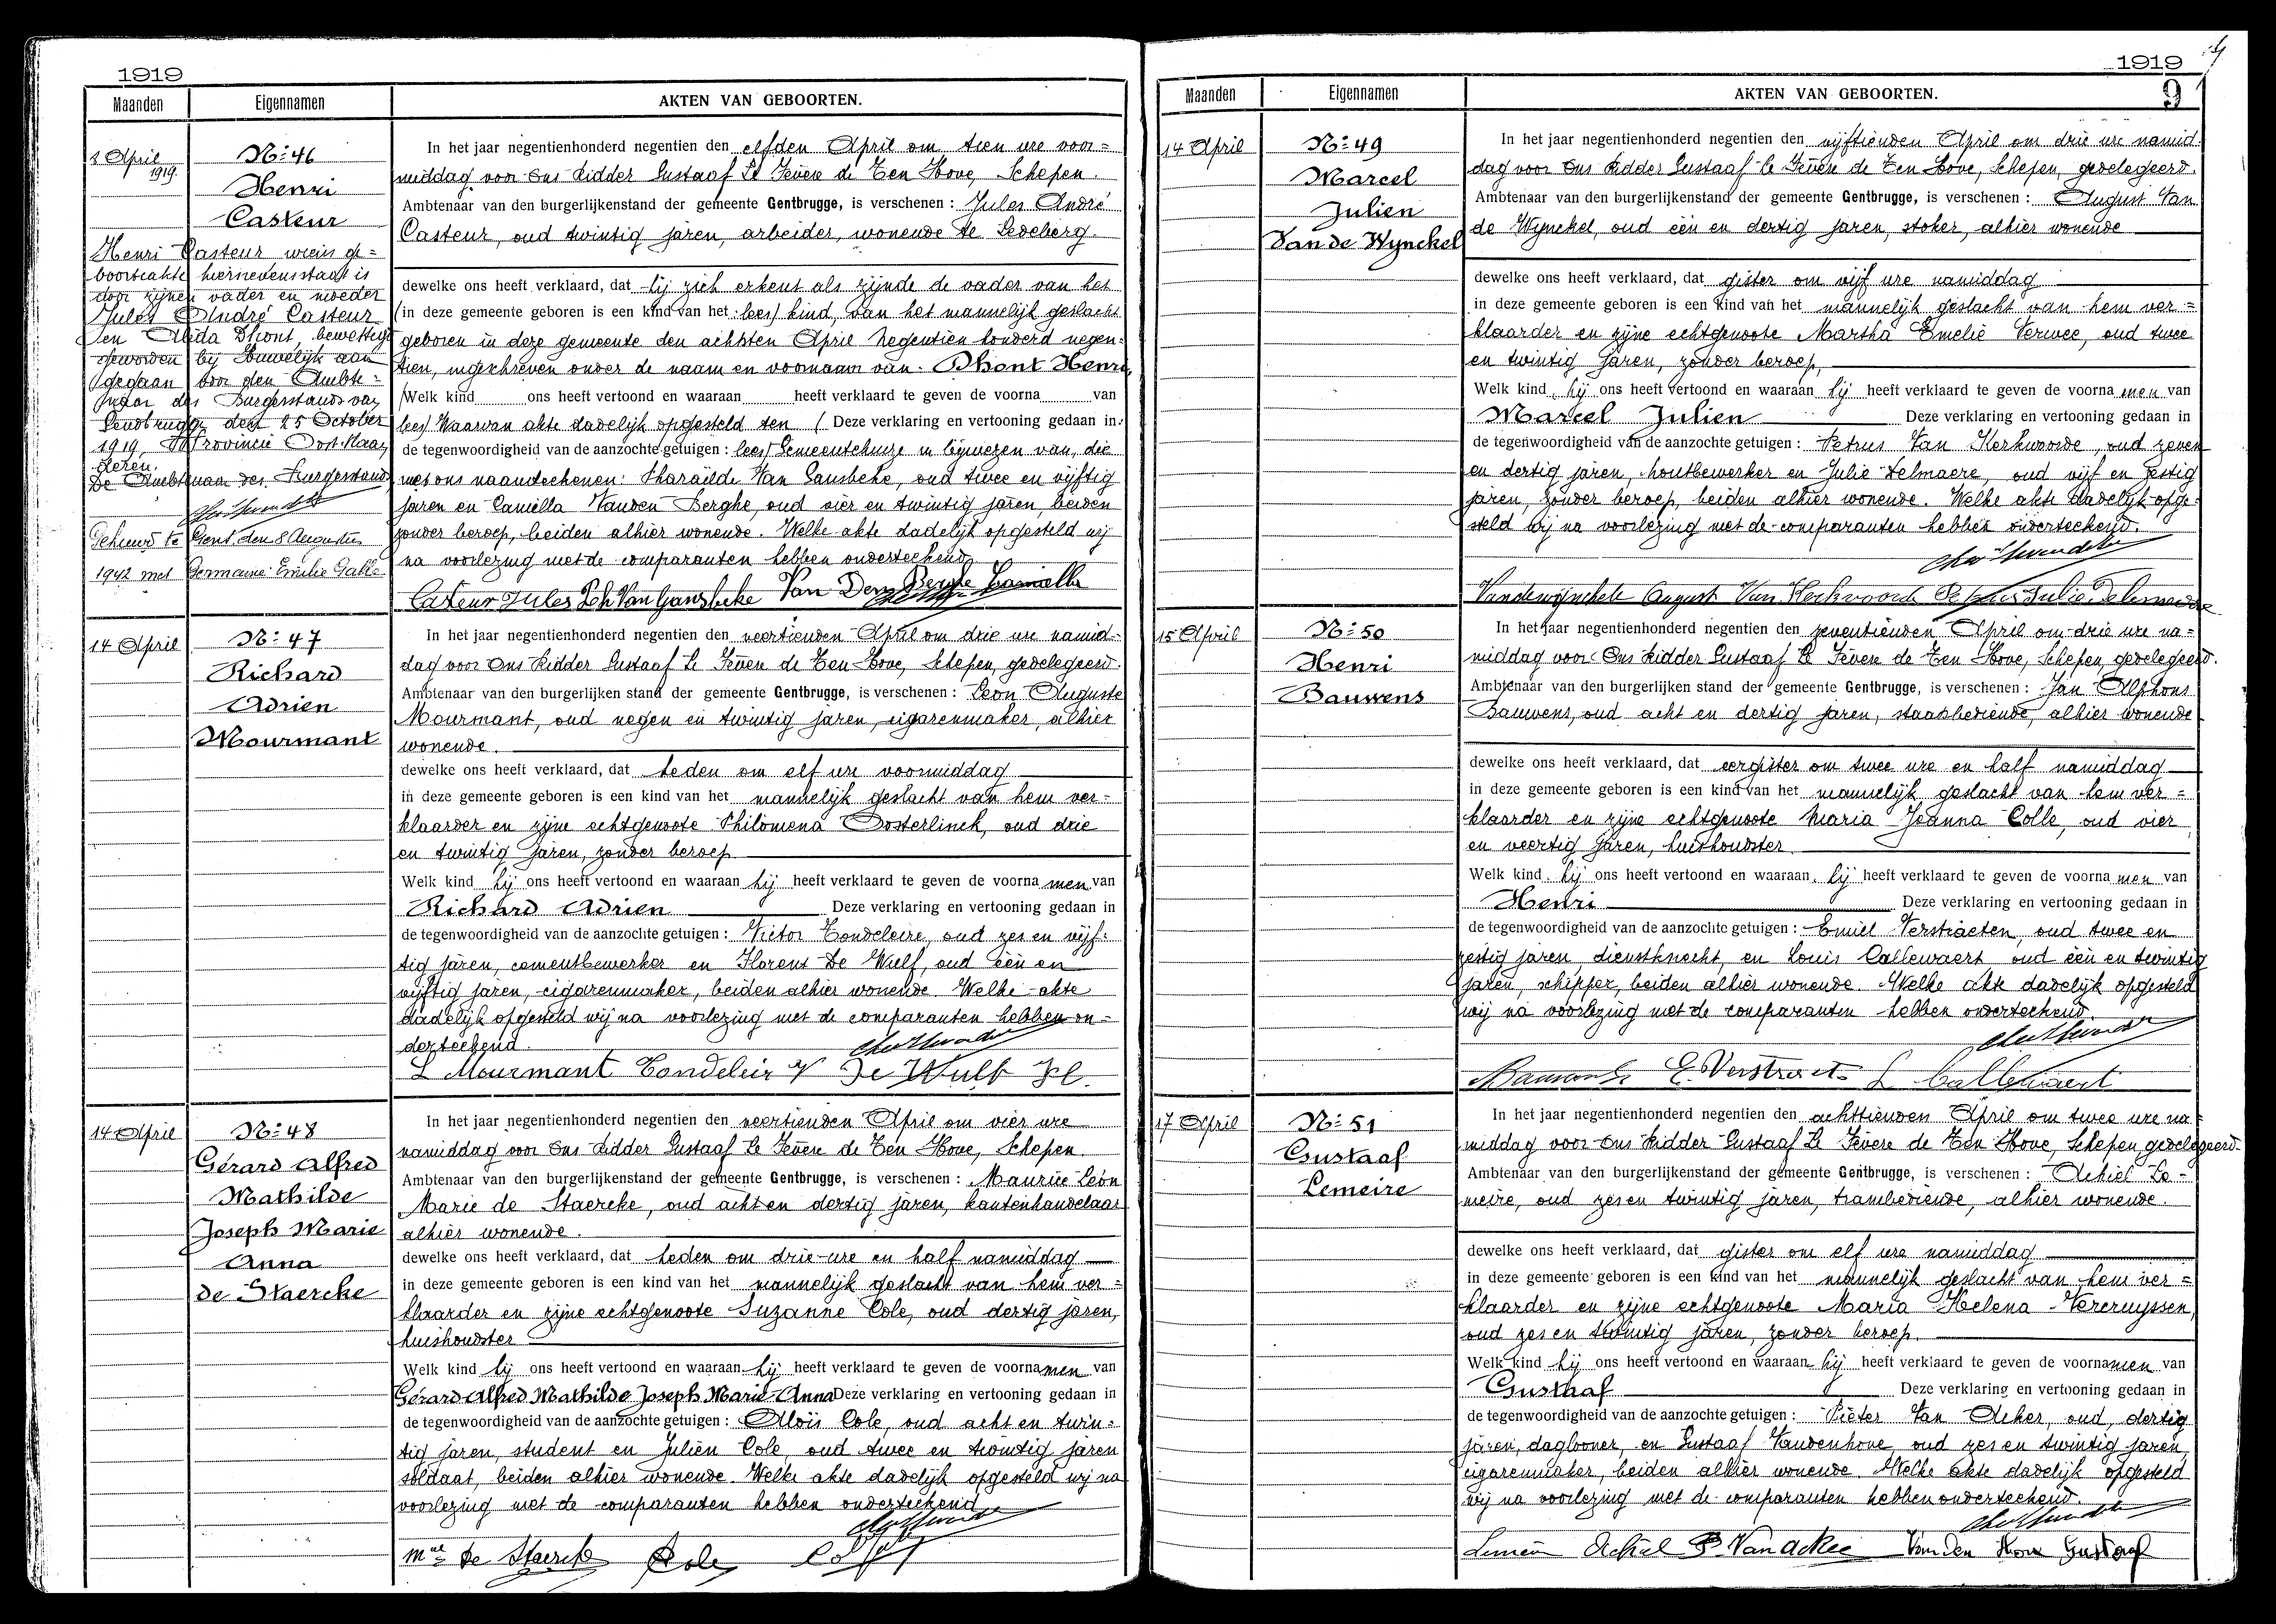 1919
Maanden Eigennamen AKTEN VAN GEBOORTEN.
8 April
1919.
No: 46
Henri
Casteur
Henri Casteur wiens ge=
boorteakte hiernevens staat is
door zijnen vader en moeder
Jules André Casteur
en Alida Dhont, bewettigd
geworden bij huwelijk aan
gegaan voor den Ambte=
naar des Burgerstands van
Gendbrugge den 25 October
1919, Provincie Oost-Vlaan
deren.
De Ambtenaar des Burgerstands
Gehuwd te Gent den 8 Augustus
1942 met Germaine Emilie Galle
In het jaar negentienhonderd negentien den elfden April om tien ure voor=
middag voor Ons Ridder Gustaaf Le Fevere de Ten Hove, Schepen.
Ambtenaar van den burgerlijkenstand der gemeente Gentbrugge, is verschenen : Jules André
Casteur, oud twintig jaren, arbeider, wonende te Ledeberg.
dewelke ons heeft verklaard, dat hij zich erkent als zijnde de vader van het
(in deze gemeente geboren is een kind van het lees) kind, van het mannelijk geslacht
geboren in deze gemeente den achtsten April negentien honderd negen=
tien, ingeschreven onder de naam en voornaam van. Dhont Henri,
(Welk kind ons heeft vertoond en waaraan heeft verklaard te geven de voorna van
lees) Waarvan akte dadelijk opgesteld ten (Deze verklaring en vertooning gedaan in
de tegenwoordigheid van de aanzochte getuigen : lees) Gemeentehuize in bijwezen van, die
met ons naamteekenen: Pharaïlde Van Gansbeke, oud twee en vijftig
jaren en Camiella Vanden Berghe, oud vier en twintig jaren, beiden
zonder beroep, beiden alhier wonende. Welke akte dadelijk opgesteld wij
na voorlezing met de comparanten hebben onderteekend.
Casteur Jules Ph Van Gansbeke Van Den Berghe Camiella
14 April
No: 47
Richard
Adrien
Mourmant
In het jaar negentienhonderd negentien den veertienden April om drie ure namid=
dag voor Ons Ridder Gustaaf Le Fevere de Ten Hove, Schepen, gedelegeerd.
Ambtenaar van den burgerlijken stand der gemeente Gentbrugge, is verschenen : Leon Auguste
Mourmant, oud negen en twintig jaren, cigarenmaker, alhier
wonende.
dewelke ons heeft verklaard, dat heden om elf ure voormiddag
in deze gemeente geboren is een kind van het mannelijk geslacht van hem ver=
klaarder en zijne echtgenoote Philomena Oosterlinck, oud drie
en twintig jaren, zonder beroep
Welk kind hij ons heeft vertoond en waaraan hij heeft verklaard te geven de voorna men van
Richard Adrien Deze verklaring en vertooning gedaan in
de tegenwoordigheid van de aanzochte getuigen : Victor Tondeleire, oud zes en vijf=
tig jaren, cementbewerker en Florent De Wulf, oud één en
vijftig jaren, cigarenmaker, beiden alhier wonende. Welke akte
dadelijk opgesteld wij na voorlezing met de comparanten hebben on=
derteekend.
L Mourmant Tondeleir V De Wulf Fl.
14 April
No: 48
Gérard Alfred
Mathilde
Joseph Marie
Anna
de Staercke
In het jaar negentienhonderd negentien den veertienden April om vier ure
namiddag voor Ons Ridder Gustaaf Le Fevere de Ten Hove, Schepen.
Ambtenaar van den burgerlijkenstand der gemeente Gentbrugge, is verschenen : Maurice Léon
Marie de Staercke, oud acht en dertig jaren, kantenhandelaar
alhier wonende.
dewelke ons heeft verklaard, dat heden om drie ure en half namiddag
in deze gemeente geboren is een kind van het mannelijk geslacht van hem ver=
klaarder en zijne echtgenoote Suzanne Cole, oud dertig jaren,
huishoudster
Welk kind hij ons heeft vertoond en waaraan hij heeft verklaard te geven de voornamen van
Gérard Alfred Mathilde Joseph Marie Anna Deze verklaring en vertooning gedaan in
de tegenwoordigheid van de aanzochte getuigen : Aloïs Cole, oud acht en twin=
tig jaren, student en Julien Cole, oud twee en twintig jaren
soldaat, beiden alhier wonende. Welke akte dadelijk opgesteld wij na
voorlezing met de comparanten hebben onderteekend
Mce De Staercke Cole
1919
9
Maanden Eigennamen AKTEN VAN GEBOORTEN.
14 April
No: 49
Marcel
Julien
Van de Wynckel
In het jaar negentienhonderd negentien den vijftienden April om drie ure namid=
dag voor Ons Ridder Gustaaf Le Fevere de Ten Hove, Schepen, gedelegeerd.
Ambtenaar van den burgerlijkenstand der gemeente Gentbrugge, is verschenen : August Van
de Wynckel, oud één en dertig jaren, stoker, alhier wonende
dewelke ons heeft verklaard, dat gister om vijf ure namiddag
in deze gemeente geboren is een kind van het mannelijk geslacht van hem ver=
klaarder en zijne echtgenoote Martha Emelie Verwee, oud twee
en twintig jaren, zonder beroep,
Welk kind hij ons heeft vertoond en waaraan hij heeft verklaard te geven de voorna men van
Marcel Julien Deze verklaring en vertooning gedaan in
de tegenwoordigheid van de aanzochte getuigen : Petrus Van Kerkvoorde, oud zeven
en dertig jaren, houtbewerker en Julie Delmaere, oud vijf en zestig
jaren, zonder beroep, beiden alhier wonende. Welke akte dadelijk opge=
steld wij na voorlezing met de comparanten hebben onderteekend.
Vandewynckele August Van Kerkvoorde Petrus Julie Delemaere
15 April
No: 50
Henri
Bauwens
In het jaar negentienhonderd negentien den zeventienden April om drie ure na=
middag voor Ons Ridder Gustaaf Le Fevere de Ten Hove, Schepen, gedelegeerd.
Ambtenaar van den burgerlijken stand der gemeente Gentbrugge, is verschenen : Jan Alphons
Bauwens, oud acht en dertig jaren, staatsbediende, alhier wonende
dewelke ons heeft verklaard, dat eergister om twee ure en half namiddag
in deze gemeente geboren is een kind van het mannelijk geslacht van hem ver=
klaarder en zijne echtgenoote Maria Joanna Colle, oud vier
en veertig jaren, huishoudster.
Welk kind hij ons heeft vertoond en waaraan hij heeft verklaard te geven de voorna men van
Henri Deze verklaring en vertooning gedaan in
de tegenwoordigheid van de aanzochte getuigen : Emiel Verstraeten, oud twee en
zestig jaren, dienstknecht, en Louis Callewaert oud één en twintig
jaren, schipper, beiden alhier wonende. Welke akte dadelijk opgesteld
wij na voorlezing met de comparanten hebben onderteekend.
Bauwens E. Verstraet L Callewaert
17 April
No: 51
Gustaaf
Lemeire
In het jaar negentienhonderd negentien den achttienden April om twee ure na=
middag voor Ons Ridder Gustaaf Le Fevere de Ten Hove, Schepen, gedelegeerd.
Ambtenaar van den burgerlijkenstand der gemeente Gentbrugge, is verschenen : Achiel Le=
meire, oud zes en twintig jaren, trambediende, alhier wonende.
dewelke ons heeft verklaard, dat gister om elf ure namiddag
in deze gemeente geboren is een kind van het mannelijk geslacht van hem ver=
klaarder en zijne echtgenoote Maria Helena Vercruyssen,
oud zes en twintig jaren, zonder beroep.
Welk kind hij ons heeft vertoond en waaraan hij heeft verklaard te geven de voornamen van
Gustaaf Deze verklaring en vertooning gedaan in
de tegenwoordigheid van de aanzochte getuigen : Pieter Van Acker, oud, dertig
jaren, daglooner, en Gustaaf Vandenhove, oud zes en twintig jaren,
cigarenmaker, beiden alhier wonende. Welke akte dadelijk opgesteld
wij na voorlezing met de comparanten hebben onderteekend.
Lemeire Achiel P. Van acker Vanden Hove Gustaaf